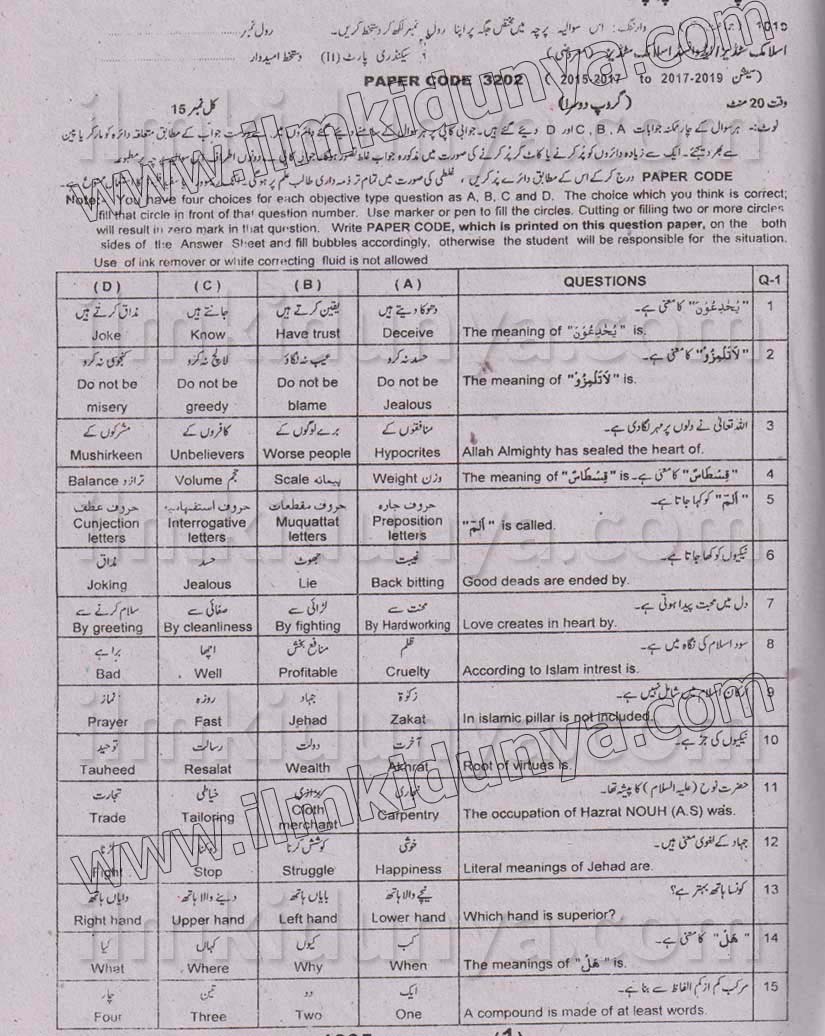 1019
وارننگ: اس سوالیہ پرچہ میں مختص جگہ پر اپنا رول نمبر لکھ کر دستخط کریں۔ رول نمبر
سیکنڈری پارٹ (II) دستخط امیدوار
PAPER CODE 3202 (سیشن 2015-2017 to 2017-2019)
وقت 20 منٹ (گروپ دوسرا) کل نمبر 15
نوٹ:۔ ہر سوال کے چار ممکنہ جوابات A, B, C اور D دیئے گئے ہیں۔ جوابی کاپی پر ہر سوال کے سامنے دیئے گئے دائروں میں سے درست جواب کے مطابق متعلقہ دائرہ کو مارکر یا پین
سے بھر دیجئے۔ ایک سے زیادہ دائروں کو پُر کرنے یا کاٹ کر پُر کرنے کی صورت میں مذکورہ جواب غلط تصور ہوگا۔
PAPER CODE درج کر کے اس کے مطابق دائرے پُر کریں، غلطی کی صورت میں تمام تر ذمہ داری طالب علم پر ہوگی۔ ممنوع ہے۔
Note:- You have four choices for each objective type question as A, B, C and D. The choice which you think is correct;
fill that circle in front of that question number. Use marker or pen to fill the circles. Cutting or filling two or more circles
will result in zero mark in that question. Write PAPER CODE, which is printed on this question paper, on the both
sides of the Answer Sheet and fill bubbles accordingly, otherwise the student will be responsible for the situation.
Use of ink remover or white correcting fluid is not allowed
(D) (C) (B) (A) QUESTIONS Q-1
مذاق کرتے ہیں جانتے ہیں یقین کرتے ہیں دھوکا دیتے ہیں "يُخٰدِعُوْنَ" کا معنی ہے۔ 1
Joke Know Have trust Deceive The meaning of "يُخٰدِعُوْنَ" is.
کنجوسی نہ کرو لالچ نہ کرو عیب نہ لگاؤ حسد نہ کرو "لَاتَلْمِزُوْ" کا معنی ہے۔ 2
Do not be Do not be Do not be Do not be The meaning of "لَاتَلْمِزُوْ" is.
misery greedy blame Jealous
مشرکوں کے کافروں کے برے لوگوں کے منافقوں کے اللہ تعالیٰ نے دلوں پر مہر لگا دی ہے۔ 3
Mushirkeen Unbelievers Worse people Hypocrites Allah Almighty has sealed the heart of.
Balance ترازو Volume حجم Scale پیمانہ Weight وزن The meaning of "قِسْطَاسٌ" is "قِسْطَاسٌ" کا معنی ہے۔ 4
حروف عطف حروف استفہامیہ حروف مقطعات حروف جارہ "الٓمّٓ" کو کہا جاتا ہے۔ 5
Cunjection Interrogative Muquattat Preposition "الٓمّٓ" is called.
letters letters letters letters
مذاق حسد جھوٹ غیبت نیکیوں کو کھا جاتا ہے۔ 6
Joking Jealous Lie Back bitting Good deads are ended by.
سلام کرنے سے صفائی سے لڑائی سے محنت سے دل میں محبت پیدا ہوتی ہے۔ 7
By greeting By cleanliness By fighting By Hardworking Love creates in heart by.
برا ہے اچھا منافع بخش ظلم سود اسلام کی نگاہ میں ہے۔ 8
Bad Well Profitable Cruelty According to Islam intrest is.
نماز روزہ جہاد زکوٰۃ ارکان اسلام میں شامل نہیں ہے۔ 9
Prayer Fast Jehad Zakat In islamic pillar is not included.
توحید رسالت دولت آخرت نیکیوں کی جڑ ہے۔ 10
Tauheed Resalat Wealth Akhrat Root of virtues is.
تجارت خیاطی حضرت نوح (علیہ السلام) کا پیشہ تھا۔ 11
Trade Tailoring Cloth merchant Carpentry The occupation of Hazrat NOUH (A.S) was.
کوشش کرنا خوشی جہاد کے لغوی معنی ہیں۔ 12
Fight Stop Struggle Happiness Literal meanings of Jehad are.
دایاں ہاتھ دینے والا ہاتھ بایاں ہاتھ نیچے والا ہاتھ کونسا ہاتھ بہتر ہے؟ 13
Right hand Upper hand Left hand Lower hand Which hand is superior?
کیا کہاں کیوں کب "هَلْ" کا معنی ہے۔ 14
What Where Why When The meanings of "هَلْ" is.
چار تین دو ایک مرکب کم از کم الفاظ سے بنتا ہے۔ 15
Four Three Two One A compound is made of at least words.
(1)
www.ilmkidunya.com
www.ilmkidunya.com
ilmkidunya.com
ilmkidunya.com
ilmkidunya.com
ilmkidunya.com